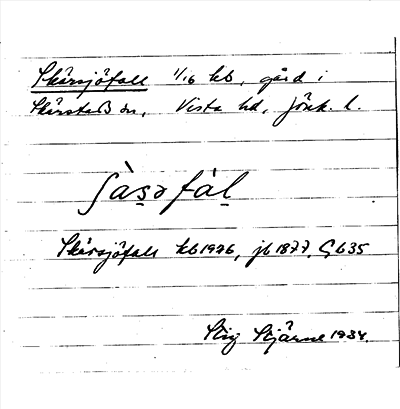 Skärsjöfall 1/16 kb, gård i
Skärstads sn, Vista hd, Jönk. l.
ʃàṣəfàḷ
Skärsjöfall kb 1926, jb 1877, Gb 35
Stig Stjärne 1934.